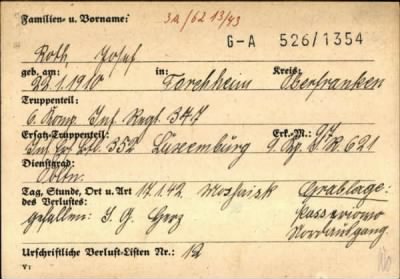 Familien- u. Vorname: 3a/62 13/43
G-A 526/1354
Roth, Josef
geb. am: in: Kreis:
22.1.1910 Forchheim Oberfranken
Truppenteil:
6. Komp. Inf. Regt. 347
Ersatz-Truppenteil: Erk.-M.: 97
Inf. Ers. Btl. 352 Luxemburg 9. Kp. I.R. 621
Dienstgrad:
Tag, Stunde, Ort u. Art 17.1.42 Moshaisk Grablage:
des Verlustes:
gefallen: I. G. Herz
Nordausgang
Urschriftliche Verlust-Listen Nr.: 12
V: